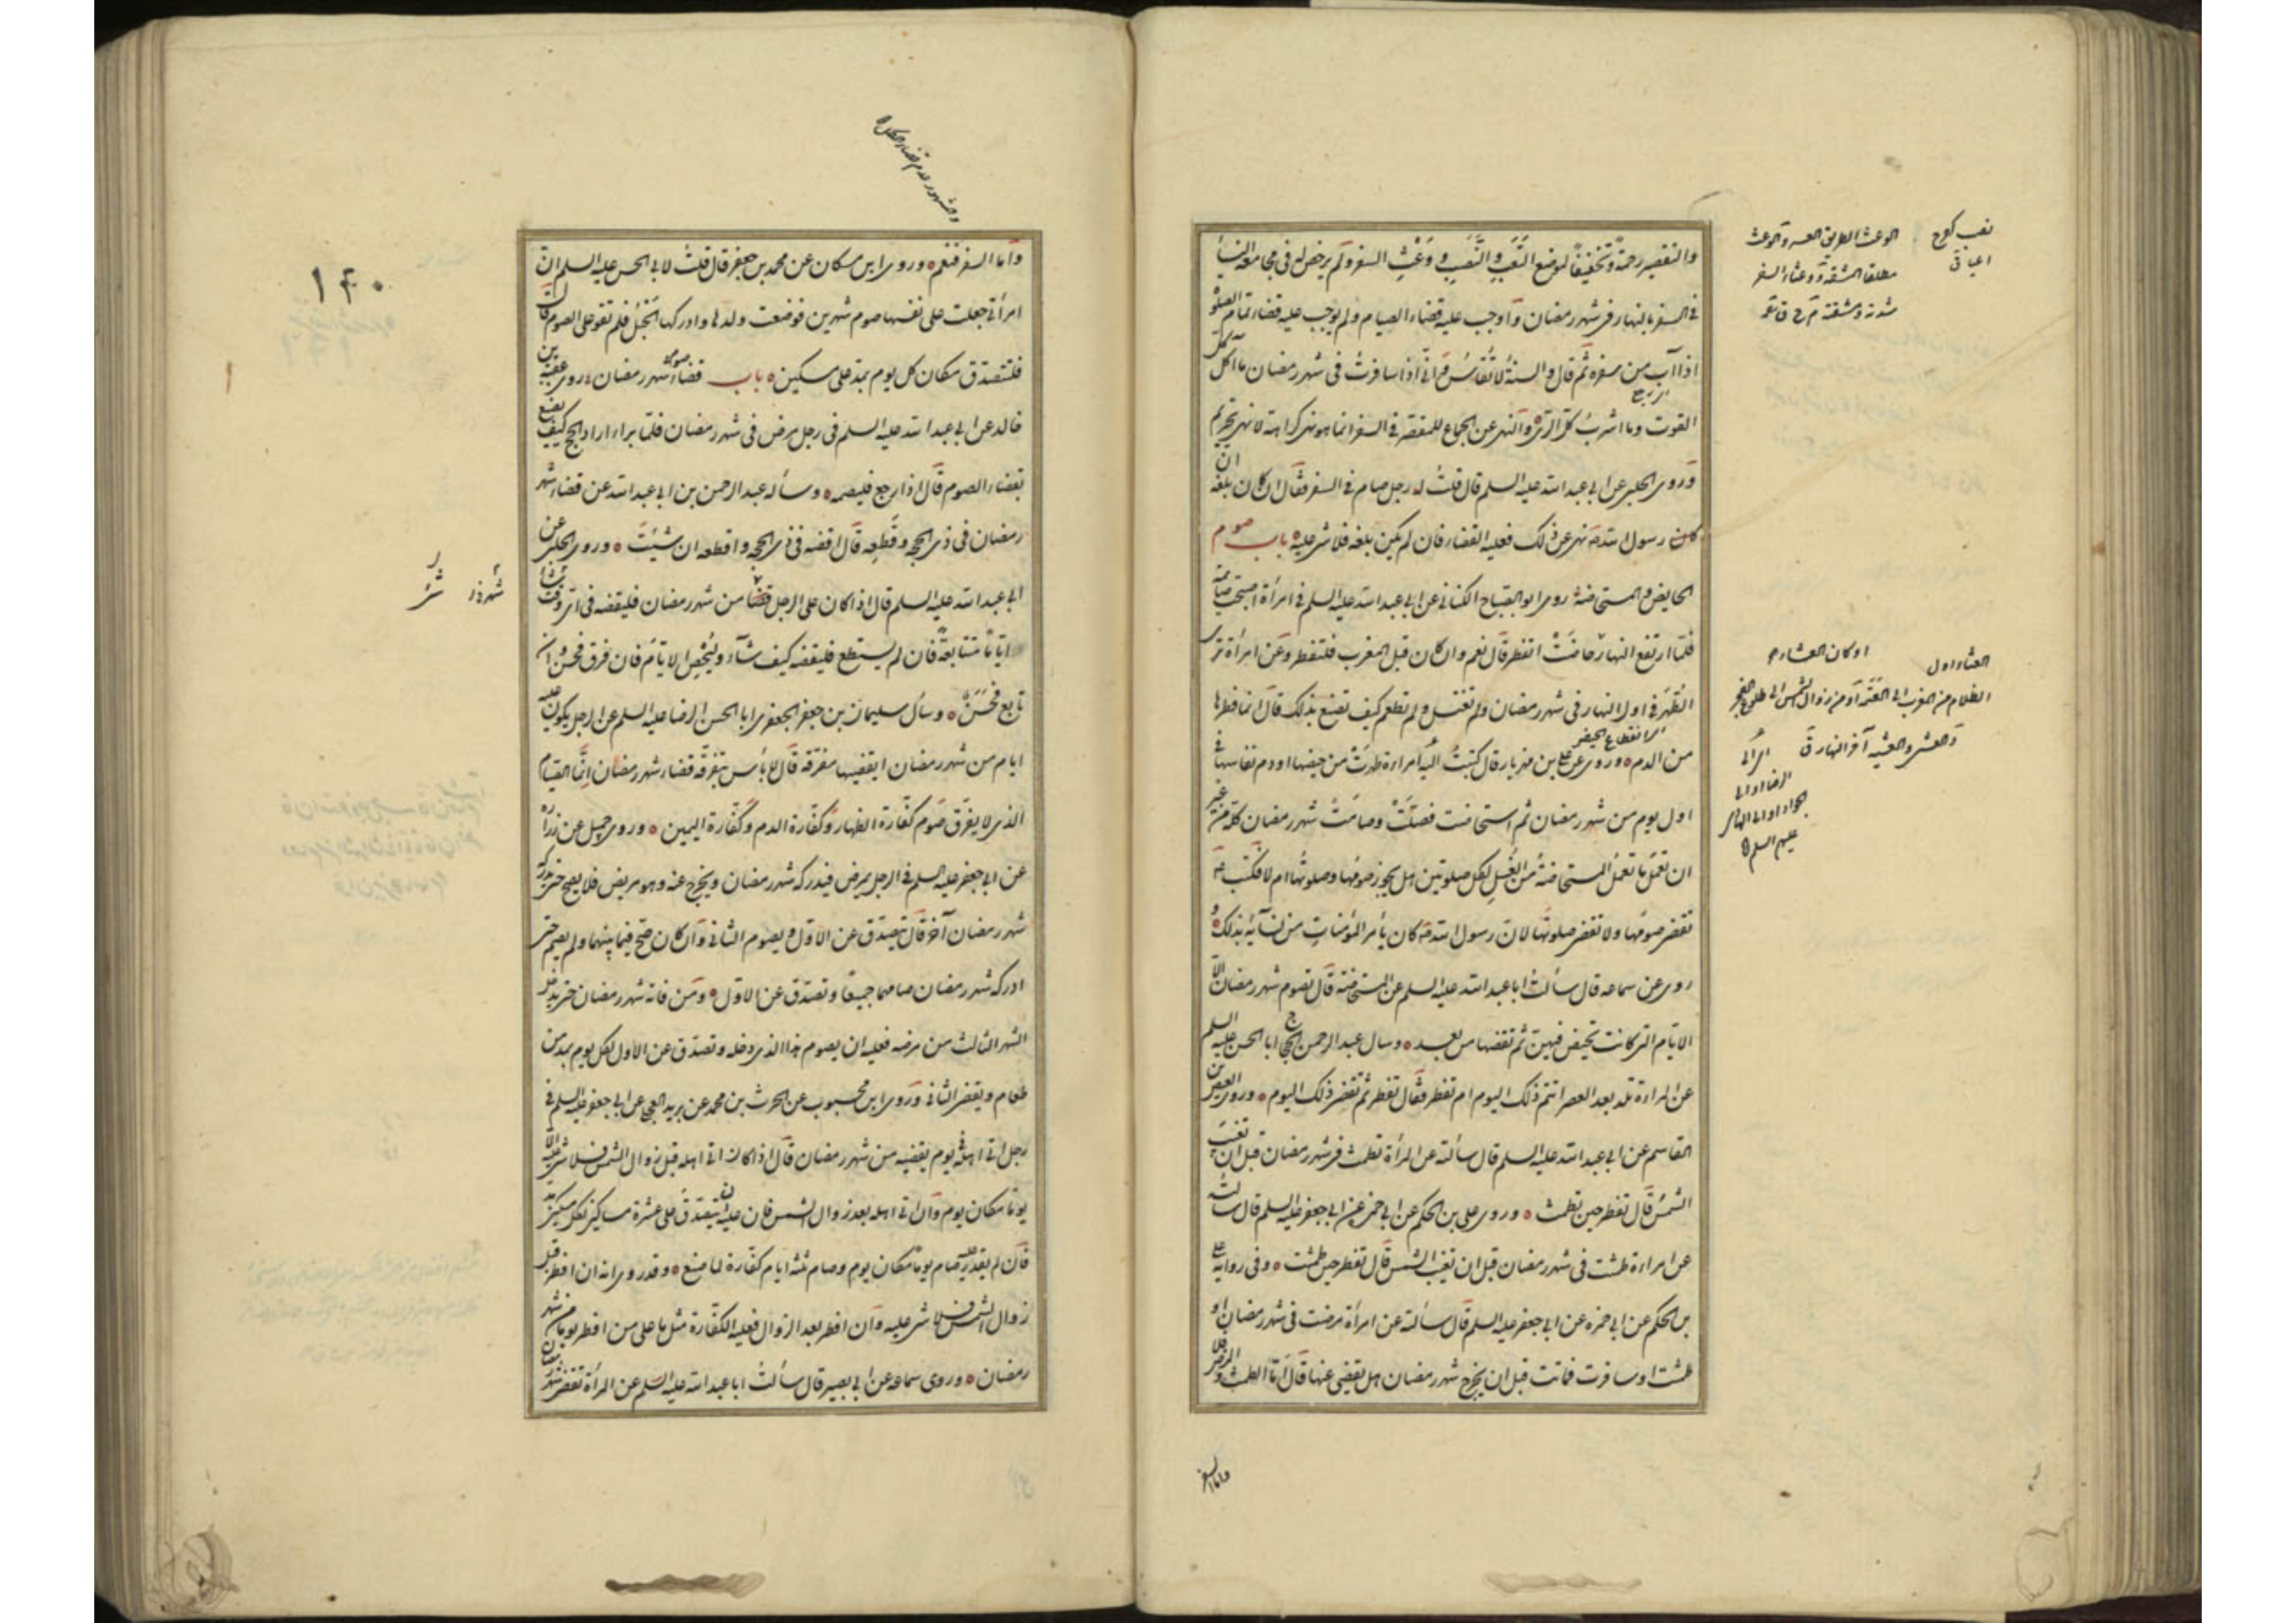 والتقصير رحمة وتخفيفا لموضع التعب والنصب و وعث السفر ولم يرخص له فى مجامعة النساء
فى السفر بالنهار فى شهر رمضان واوجب عليه قضاء الصيام ولم يوجب عليه قضاء تمام الصلوة
اذا آب من سفره ثم قال والسنة لا تقاس وانى اذا سافرت فى شهر رمضان ما آكل كل
القوت وما اشرب كل الرى والنهى عن الجماع للمقصر فى السفر انما هو نهى كراهة لا نهى تحريم
وروى الحلبى عن ابى عبد الله عليه السلم قال قلت له رجل صام فى السفر فقال ان كان بلغه ان
رسول الله ص نهى عن ذلك فعليه القضاء فان لم يكن بلغه فلا شىء عليه باب صوم
الحايض والمستحاضة روى ابو الصباح الكنانى عن ابى عبد الله عليه السلم فى امرأة اصبحت صائمة
فلما ارتفع النهار حاضت اتفطر قال نعم وان كان قبل المغرب فلتفطر وعن امرأة ترى
الطهر فى اول النهار فى شهر رمضان ولم تغتسل ولم تطعم كيف تصنع بذلك قال انما فطرها
من الدم وروى عن على بن مهزيار قال كتبت اليه امراءة طهرت من حيضها او دم نفاسها فى
اول يوم من شهر رمضان ثم استحاضت فصلت وصامت شهر رمضان كله من غير
ان تعمل ما تعمل المستحاضة من الغسل لكل صلوتين هل يجوز صومها وصلوتها ام لا فكتب ع
تقضى صومها ولا تقضى صلوتها لان رسول الله ص كان يأمر المؤمنات من نسآئه بذلك و
روى عن سماعه قال سألت ابا عبد الله عليه السلم عن المستحاضة قال تصوم شهر رمضان الا
الايام التى كانت تحيض فيهن ثم تقضها من بعد وسال عبد الرحمن بن الحجاج ابا الحسن عليه السلم
عن المراءة تلد بعد العصر اتتم ذلك اليوم ام تفطر فقال تفطر ثم تقضى ذلك اليوم وروى العيص بن
القاسم عن ابى عبد الله عليه السلم قال سألته عن المرأة تطمث فى شهر رمضان قبل ان تغيب
الشمس قال تفطر حين تطمث وروى على بن الحكم عن ابى حمزه عن ابى جعفر عليه السلم قال سألته
عن امراءة طمثت فى شهر رمضان قبل ان تغيب الشمس قال تفطر حين طمثت وفى رواية على
بن الحكم عن ابى حمزه عن ابى جعفر عليه السلم قال سألته عن امرأة مرضت فى شهر رمضان او
طمثت او سافرت فماتت قبل ان يخرج شهر رمضان هل يقضى عنها قال اما الطمث والمرض فلا
واما السفر
تعب كفرح
اعيا ق
الوعث الطريق العسر والوعث
مطلقا المشقة ووعثاء السفر
شدته ومشقته
انقطاع الحيض
العشاء اول
الظلام من المغرب الى العتمة او من زوال الشمس الى طلوع الفجر
والعشى والعشية آخر النهار ق
او كان العشاء
اى الى
الرضا او الى
الجواد او الى الهادى
عليهم السلم
واما السفر فنعم وروى ابن مسكان عن محمد بن جعفر قال قلت لابى الحسن عليه السلم ان
امرأتى جعلت على نفسها صوم شهرين فوضعت ولدها وادركها الحبل فلم تقو على الصوم قال
فلتصدق مكان كل يوم بمد على مسكين باب قضاء صوم شهر رمضان روى عقبة بن
خالد عن ابى عبد الله عليه السلم فى رجل مرض فى شهر رمضان فلما براء اراد الحج كيف يصنع
بقضاء الصوم قال اذا رجع فليصمه وسأله عبد الرحمن بن ابى عبد الله عن قضاء شهر
رمضان فى ذى الحجه وقطعه قال اقضه فى ذى الحجه واقطعه ان شيئت وروى الحلبى عن
ابى عبد الله عليه السلم قال اذا كان على الرجل قضا من شهر رمضان فليقضه فى اى وقت شاء
اياما متتابعة فان لم يستطع فليقضه كيف شآء وليحص الايام فان فرق فحسن وان
تابع فحسن وسأل سليمان بن جعفر الجعفرى ابا الحسن الرضا عليه السلم عن الرجل يكون عليه
ايام من شهر رمضان ايقضيها متفرقة قال لا بأس بتفرقه قضاء شهر رمضان انما الصيام
الذى لا يفرق صوم كفارة الظهار وكفارة الدم وكفارة اليمين وروى جميل عن زرارة
عن ابى جعفر عليه السلم فى الرجل يمرض فيدركه شهر رمضان ويخرج عنه وهو مريض فلا يصح حتى يدركه
شهر رمضان آخر قال يتصدق عن الاول ويصوم الثانى وان كان صح فيما بينهما ولم يصم حتى
ادركه شهر رمضان صامهما جميعا وتصدق عن الاول ومن فاته شهر رمضان حتى يدخل
الشهر الثالث من مرضه فعليه ان يصوم هذا الذى دخله وتصدق عن الاول لكل يوم بمد من
طعام ويقضى الثانى وروى ابن محبوب عن الحرث بن محمد عن بريد العجلى عن ابى جعفر عليه السلم فى
رجل اتى اهله فى يوم يقضيه من شهر رمضان قال اذا كان اتى اهله قبل زوال الشمس فلا شىء عليه الا
يوما مكان يوم وان اتى اهله بعد زوال الشمس فان عليه ان يتصدق على عشرة مساكين لكل مسكين مد
فان لم يقدر عليه صام يوما مكان يوم وصام ثلثة ايام كفارة لما صنع وقد روى انه ان افطر قبل
زوال الشمس فلا شىء عليه وان افطر بعد الزوال فعليه الكفارة مثل ما على من افطر يوما من شهر
رمضان وروى سماعه عن ابى بصير قال سألت ابا عبد الله عليه السلم عن المرأة تقضى شهر رمضان
١٤٠